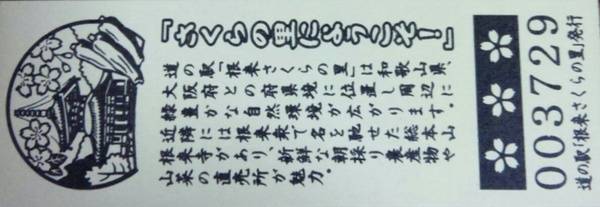 「さくらの里にようこそ！」
道の駅「根来さくらの里」は和歌山県、
大阪府との府県境に位置し周辺に
緑豊かな自然環境が広がります。
近隣には根来衆で名を馳せた総本山
根来寺があり、新鮮な朝採り農産物や
山菜の直売所が魅力。
003729
道の駅「根来さくらの里」発行